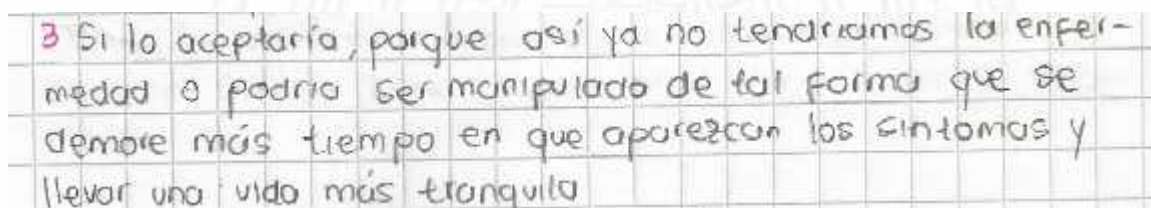 3 Si lo aceptaría, porque así ya no tendriamos la enfer-
medad o podria ser manipulado de tal forma que se
demore más tiempo en que aparezcan los sintomas y
llevar una vida más tranquila